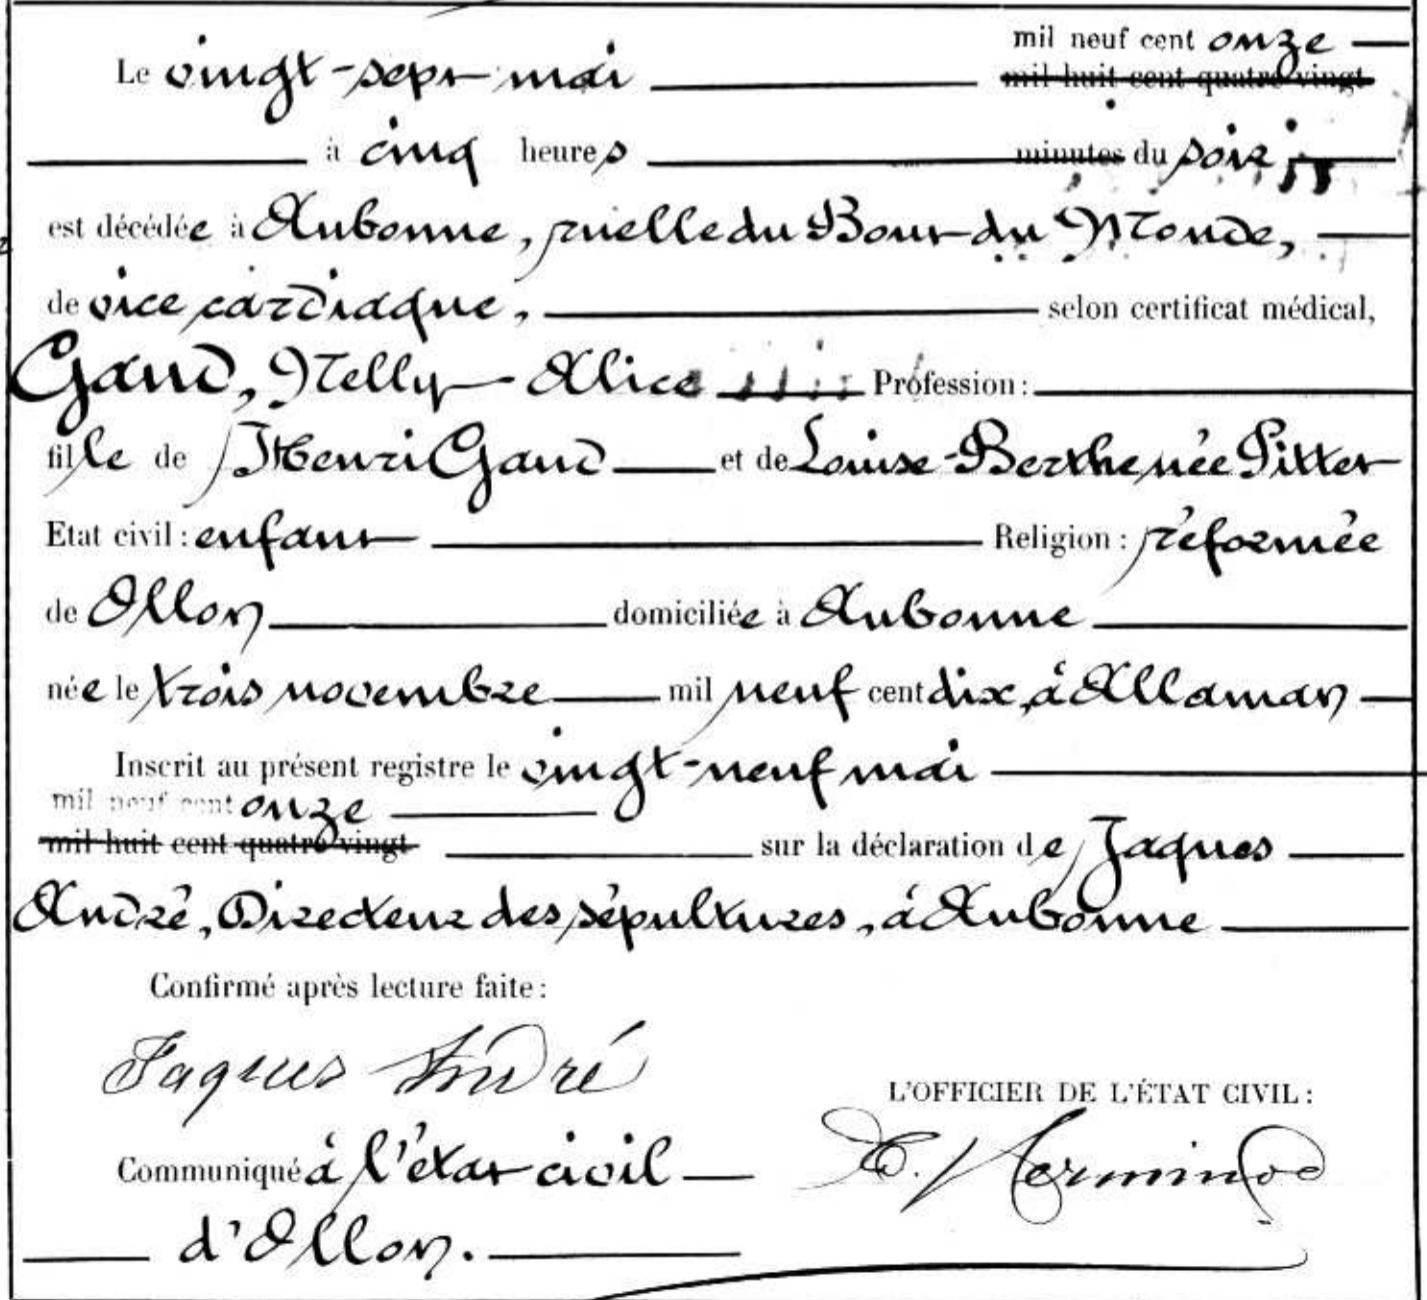 mil neuf cent onze
Le vingt-sept mai mil huit cent quatre vingt
à cinq heures minutes du soir,
est décédée à Aubonne, ruelle du Bout du Monde,
de vice cardiaque, selon certificat médical,
Gand, Nelly-Alice Profession :
fille de Henri Gand et de Louise-Berthe née Pitter
Etat civil : enfant Religion : réformée
de Ollon domiciliée à Aubonne
née le trois novembre mil neuf cent dix, à Allaman
Inscrit au présent registre le vingt-neuf mai
mil neuf cent onze
mil huit cent quatre vingt sur la déclaration de Jaques
André, Directeur des sépultures, à Aubonne
Confirmé après lecture faite :
Jaques André
L'OFFICIER DE L'ÉTAT CIVIL :
Communiqué à l'état civil
d'Ollon.